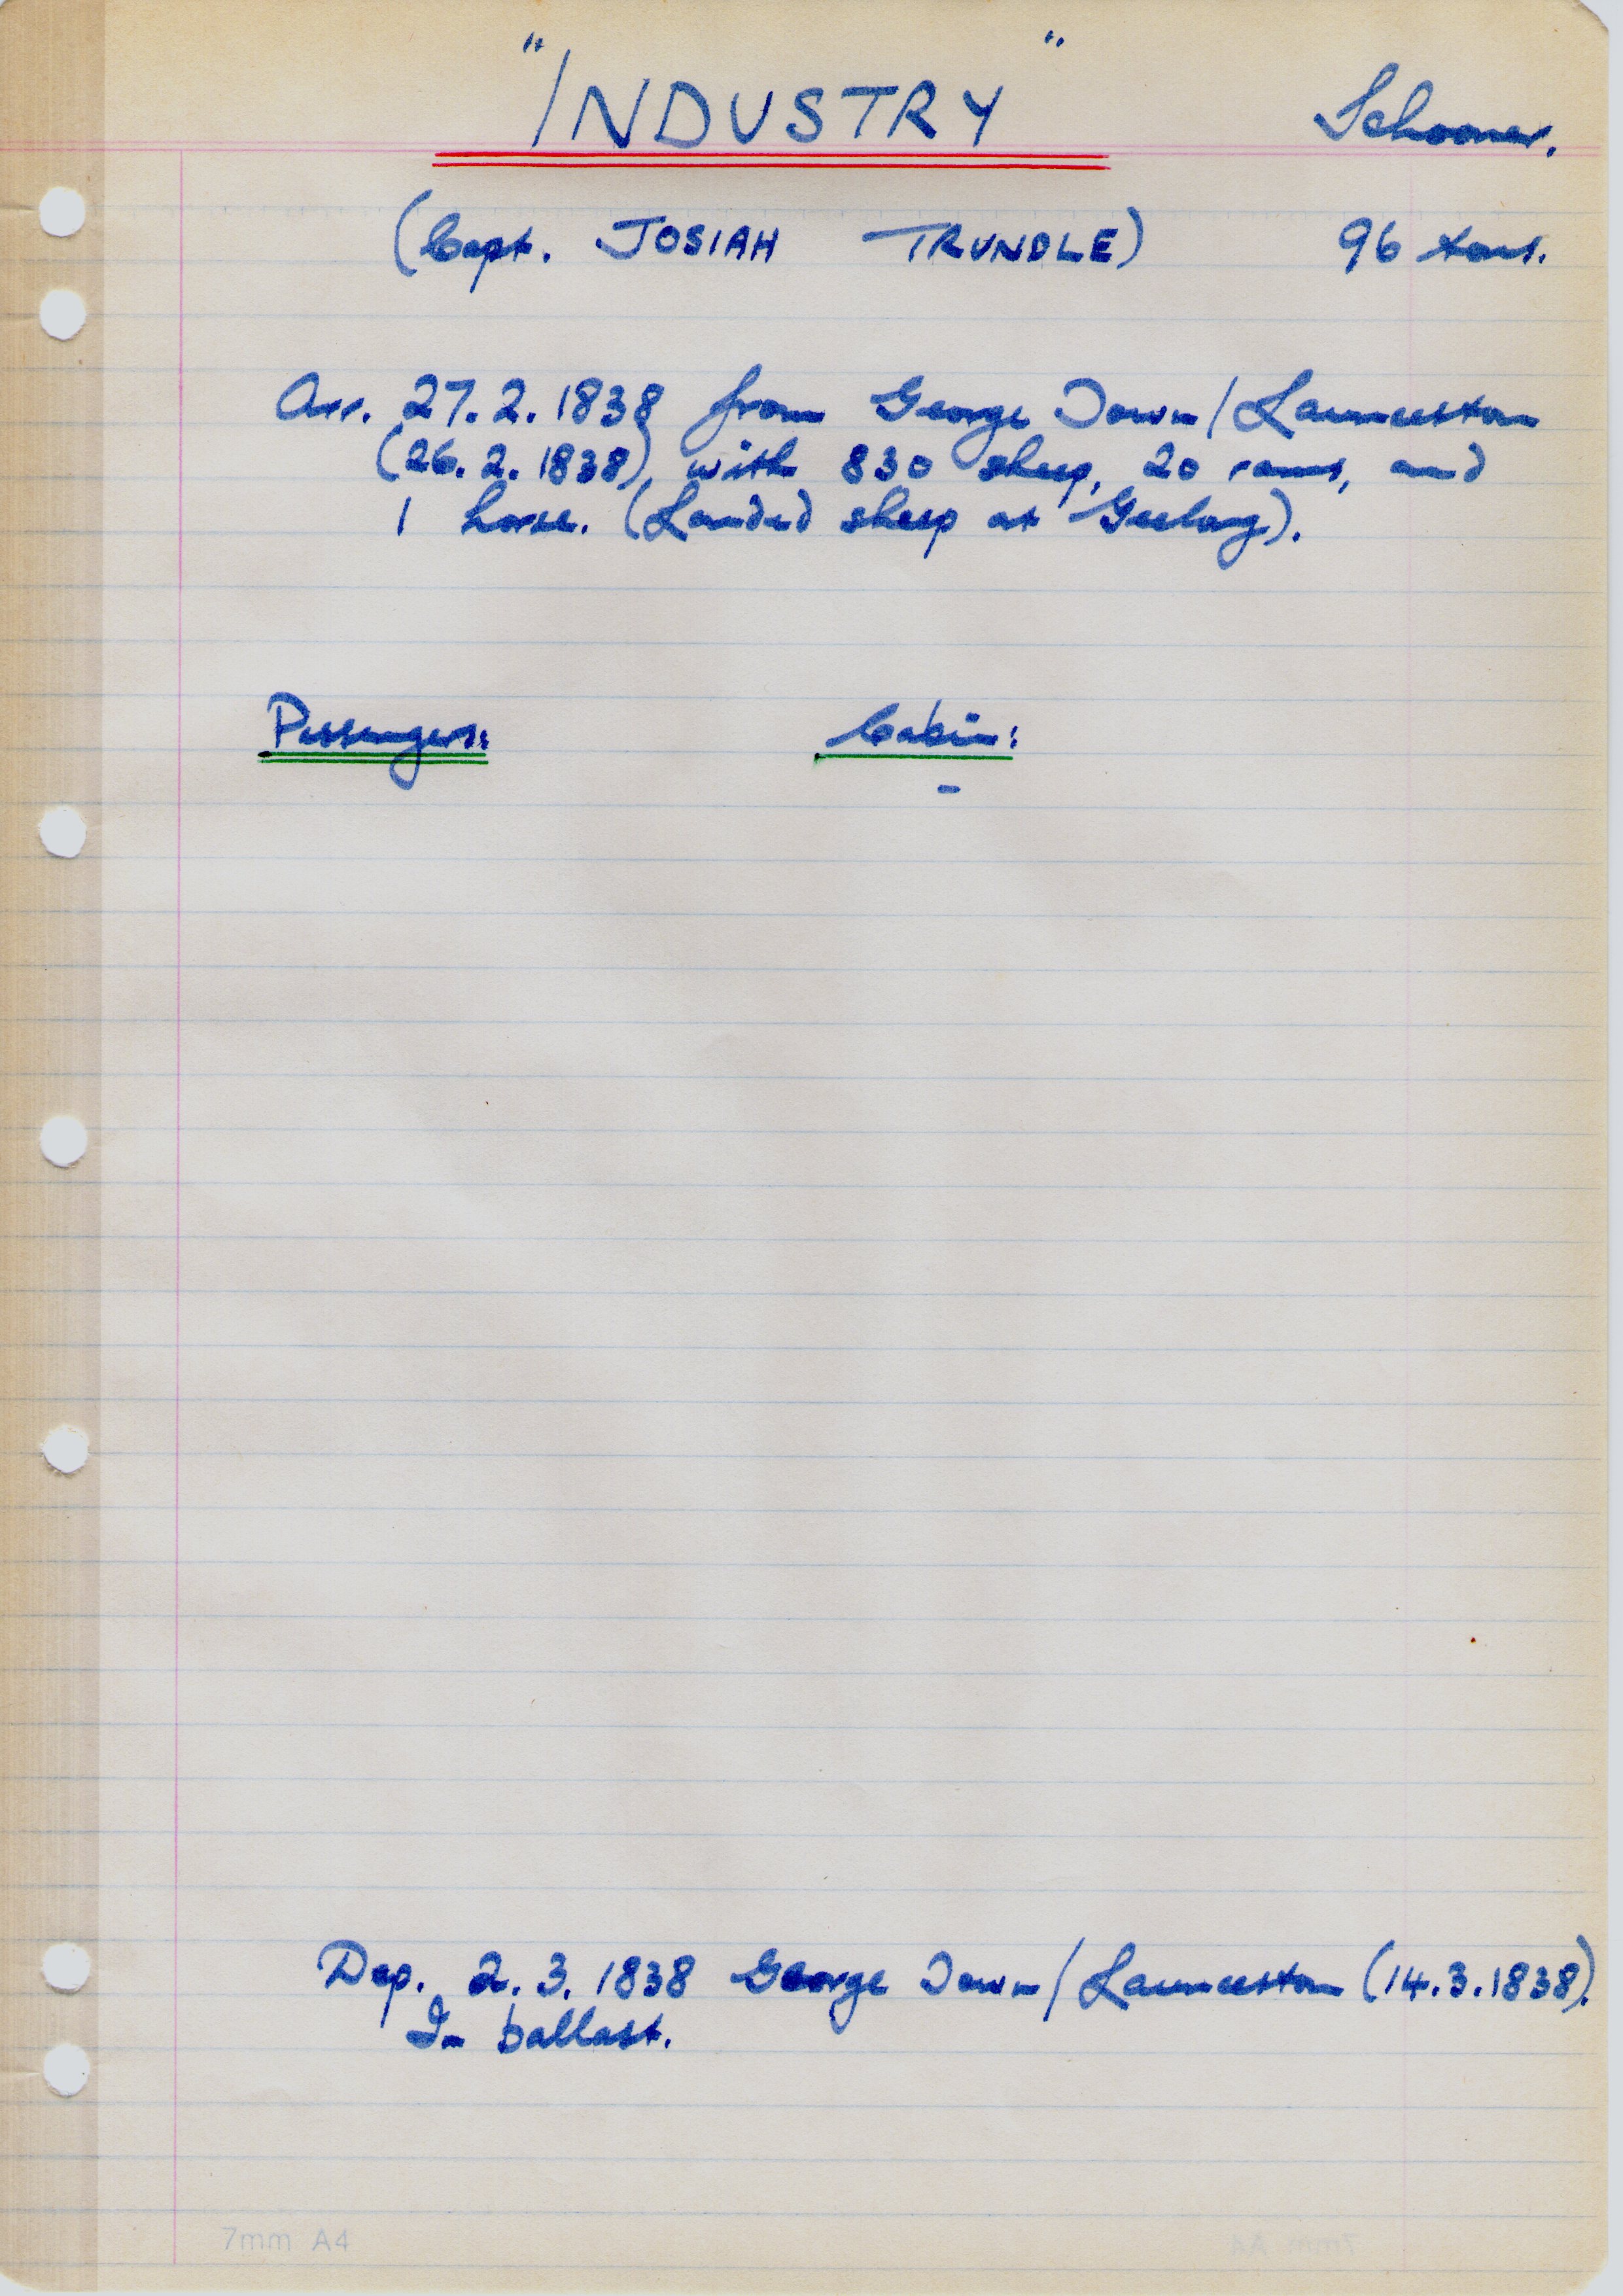 "INDUSTRY" Schooner.
(Capt. JOSIAH TRUNDLE) 96 tons.
Arr. 27.2.1838 from George Town/Launceston
(26.2.1838), with 830 sheep, 20 rams, and
1 horse. (Landed sheep at Geelong).
Passengers: Cabin:
-
Dep. 2.3.1838 George Town/Launceston (14.3.1838).
In ballast.
7mm A4